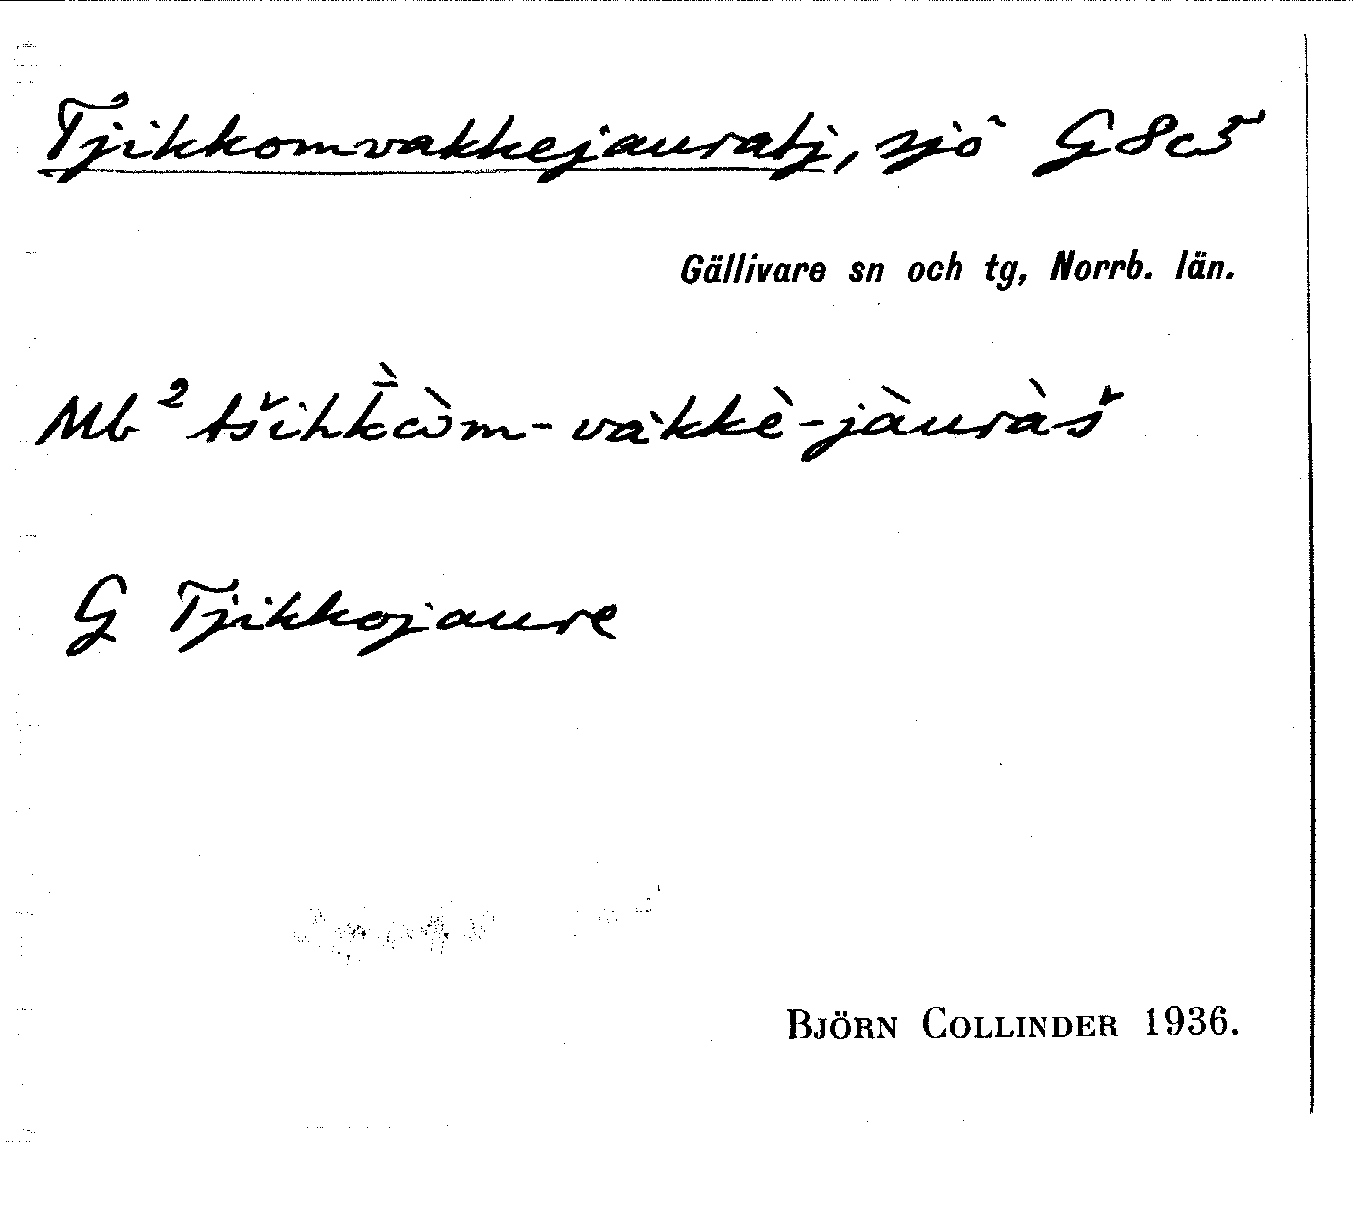 Tjikkomvakkejauratj, sjö G8c5
Gällivare sn och tg, Norrb. län.
Mb² tšihk̄̀ὼm-vàkkè-jàuràš
G Tjikkojaure
BJÖRN COLLINDER 1936.